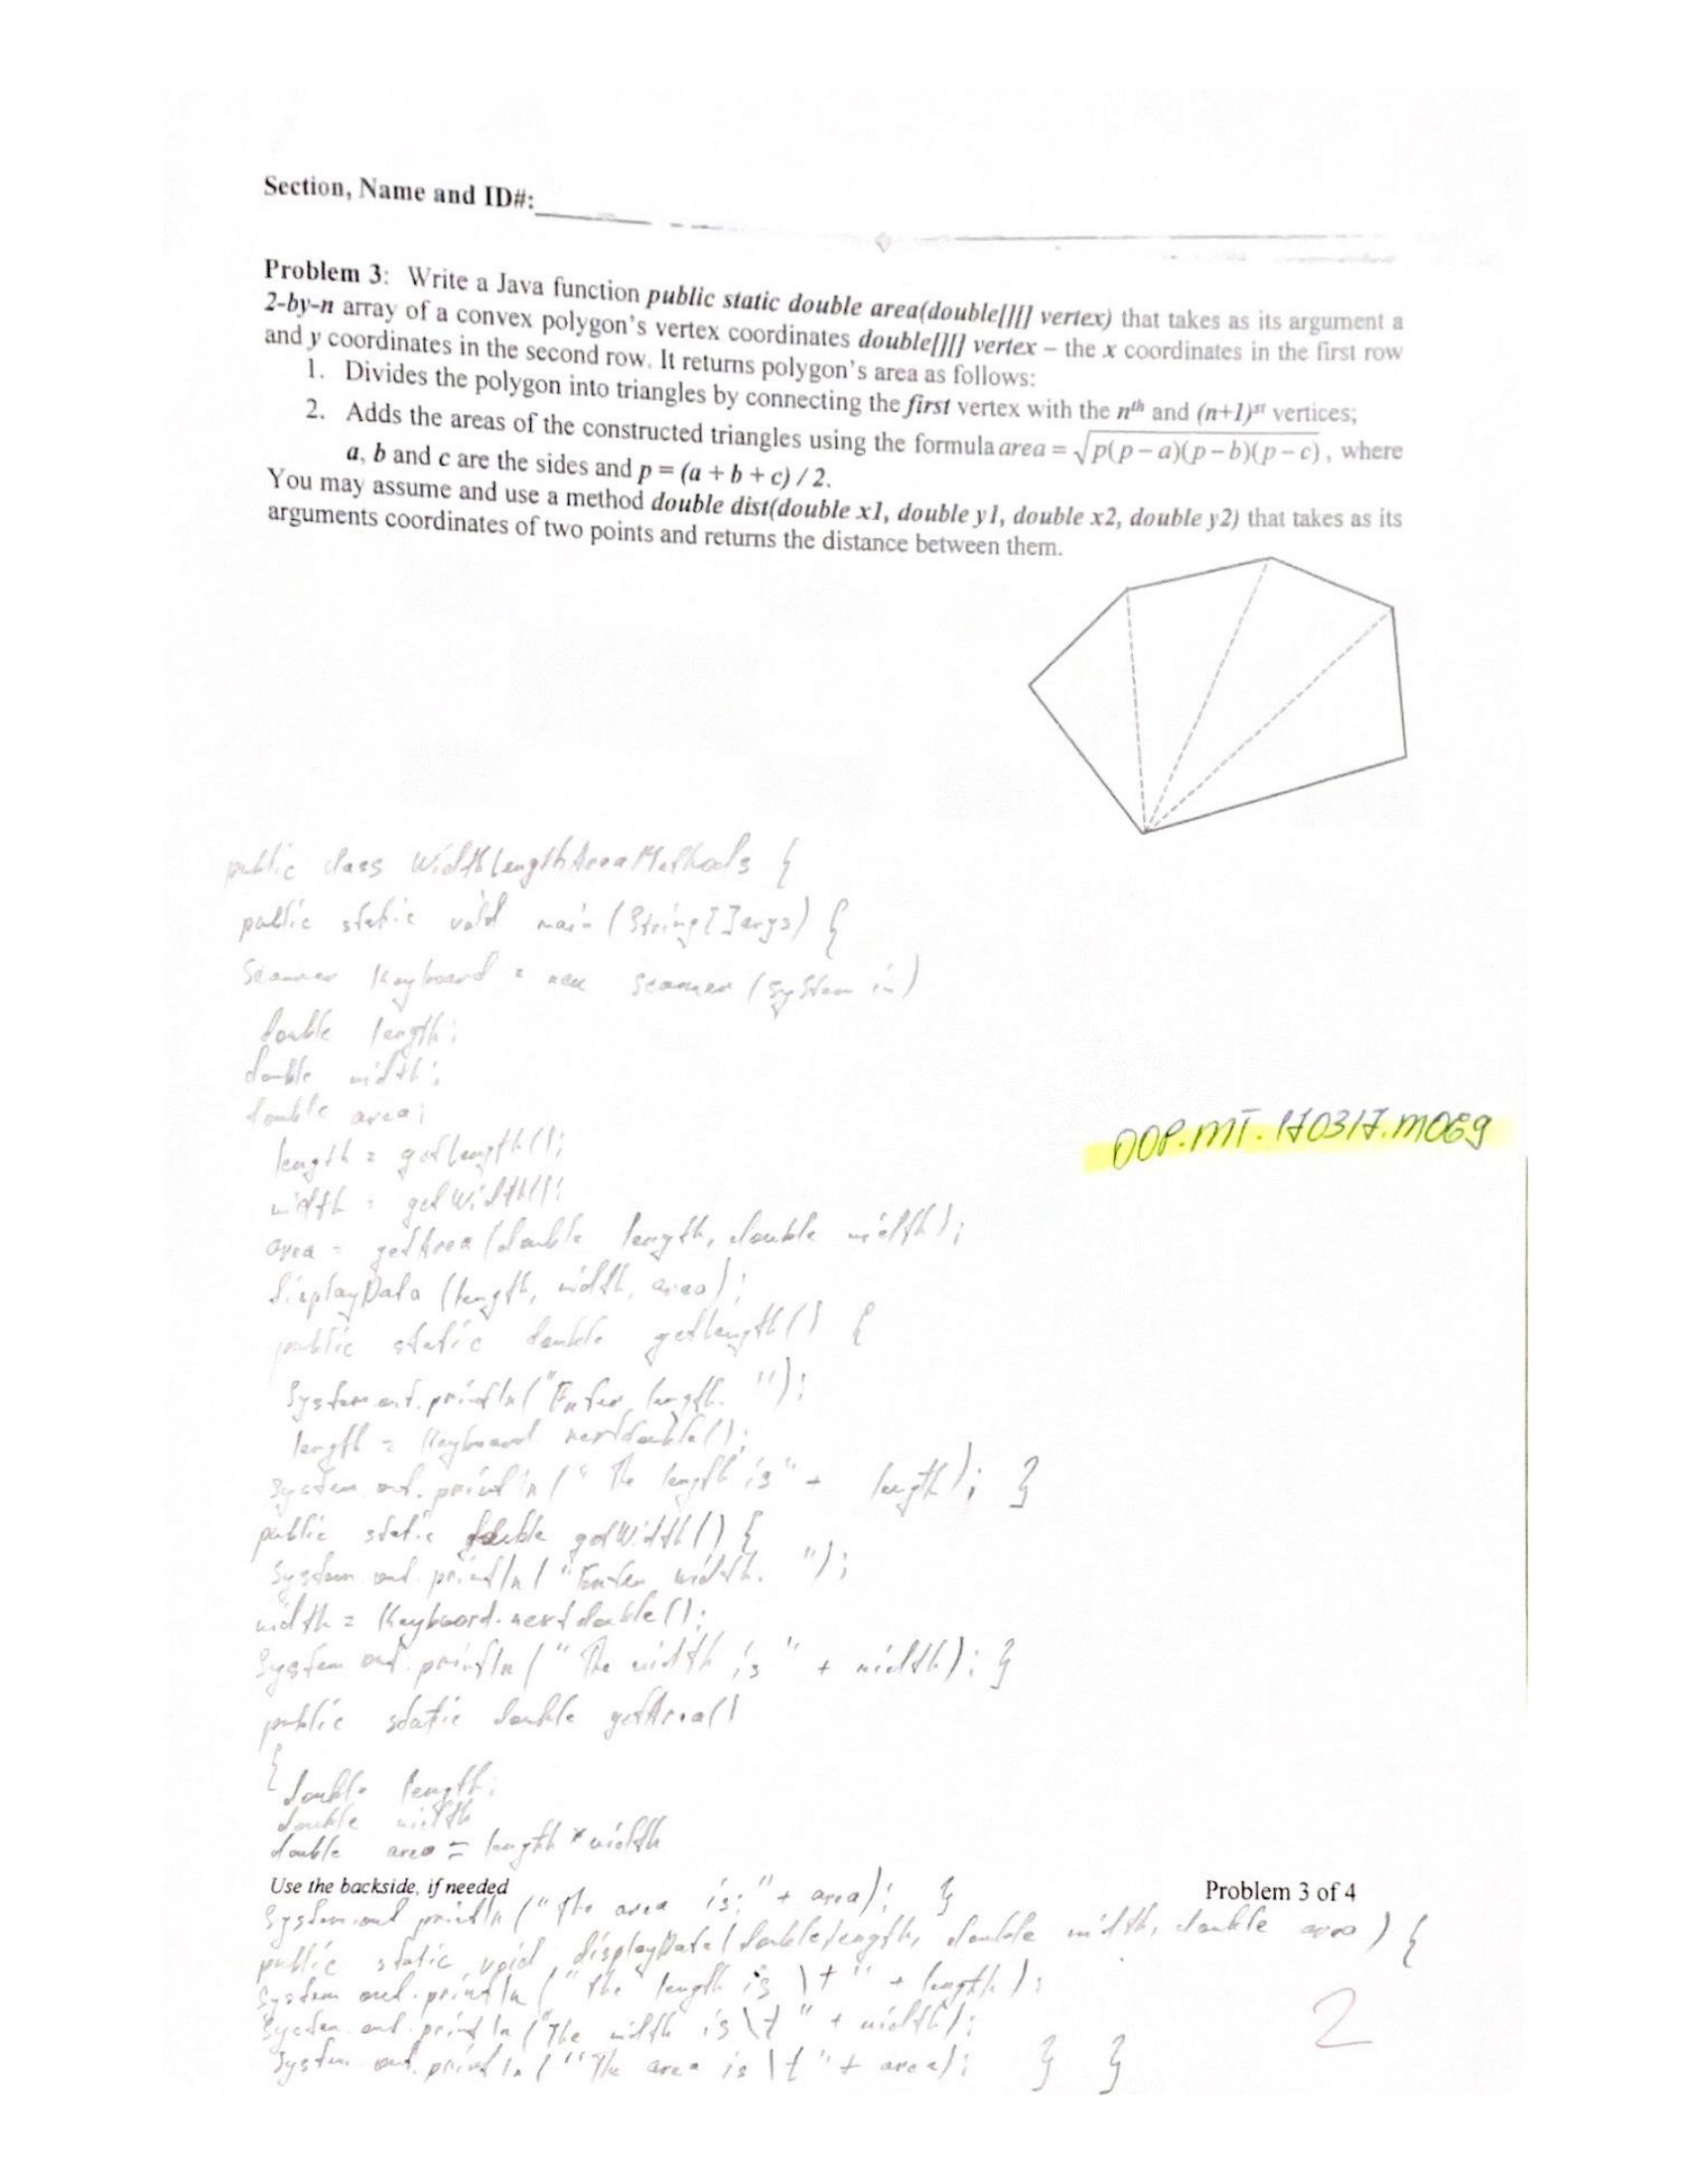 Section, Name and ID#:
Problem 3: Write a Java function public static double area(double[][] vertex) that takes as its argument a
2-by-n array of a convex polygon's vertex coordinates double[][] vertex – the x coordinates in the first row
and y coordinates in the second row. It returns polygon's area as follows:
1. Divides the polygon into triangles by connecting the first vertex with the nth and (n+1)st vertices;
2. Adds the areas of the constructed triangles using the formula area = √p(p – a)(p – b)(p – c), where
a, b and c are the sides and p = (a + b + c) / 2.
You may assume and use a method double dist(double x1, double y1, double x2, double y2) that takes as its
arguments coordinates of two points and returns the distance between them.
public class WidthLengthAreaMethods {
public static void main (String[]args) {
Scanner Keyboard = new Scanner (System in)
double length;
double width;
double area;
length = getlength();
width = getWidth();
area = getArea (double length, double width);
displayData (length, width, area);
public static double getlength() {
System.out.println("Enter length. ");
length = Keyboard nextdouble();
System out. println (" The length is" + length); }
public static double getWidth() {
System out println( "Enter width. ");
width = Keyboard. nextdouble();
System out. println (" The width is " + width); }
public static double getArea()
{
double length;
double width
double area = length * width
Use the backside, if needed
Problem 3 of 4
System.out println ("The area is: " + area); }
public static void displayData (double length, double width, double area) {
System out. println ("The length is \t " + length);
System. out. println ("The width is \t " + width);
System out. println ("The area is \t " + area); } }
OOP.MT.170317.M069
2